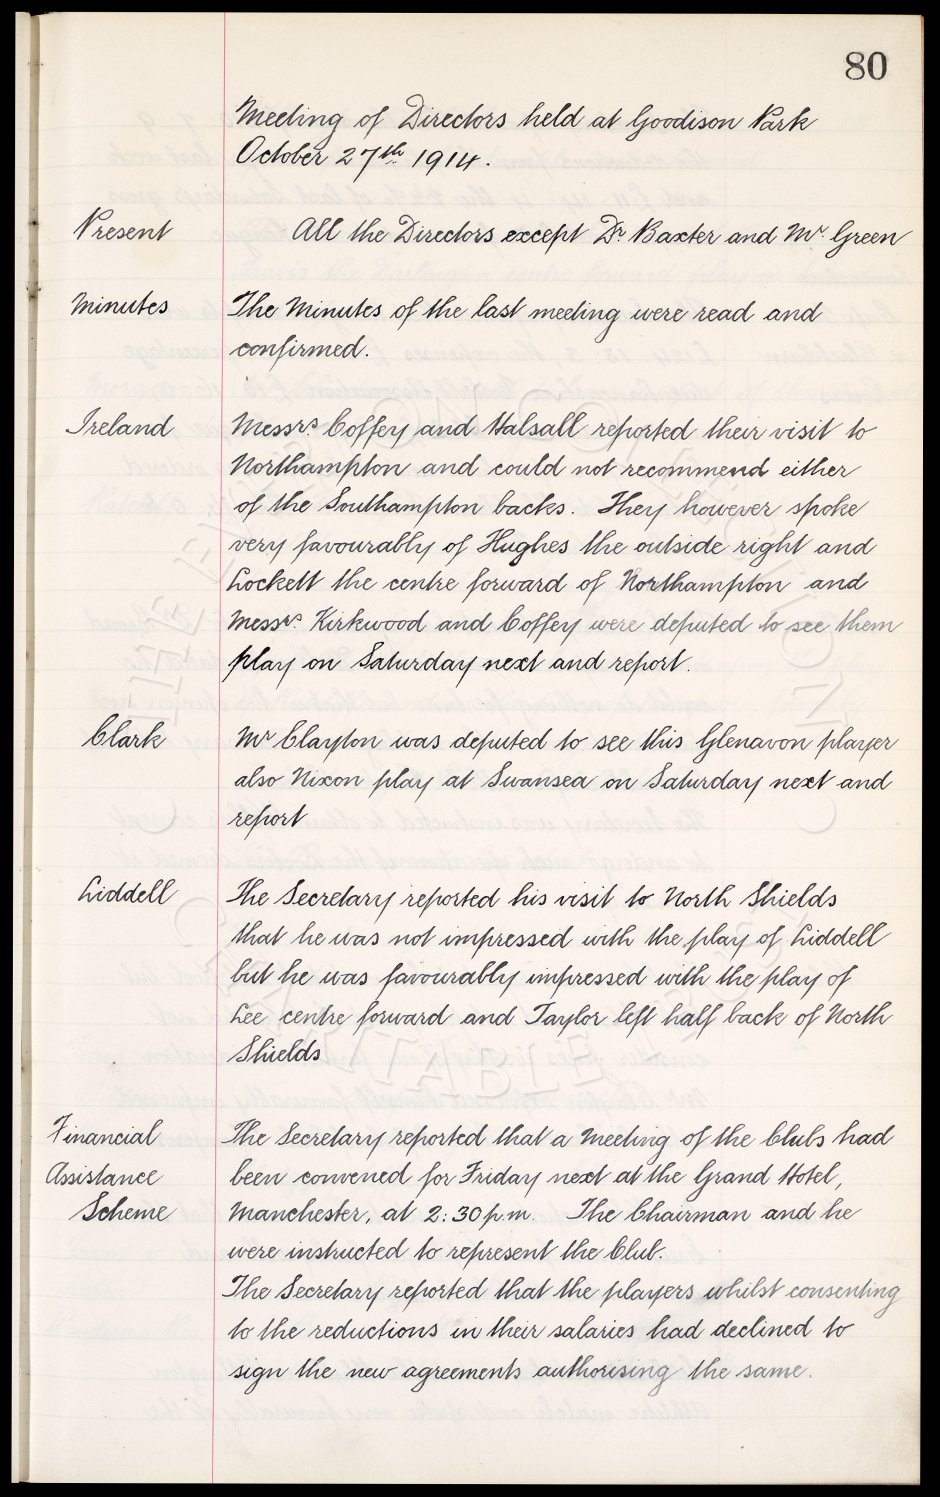 80
Meeting of Directors held at Goodison Park
October 27th 1914.
Present All the Directors except Dr Baxter and Mr. Green
Minutes The Minutes of the last meeting were read and
confirmed.
Ireland Messrs. Coffey and Halsall reported their visit to
Northampton and could not recommend either
of the Southampton backs. They however spoke
very favourably of Hughes the outside right and
Lockett the centre forward of Northampton and
Messrs. Kirkwood and Coffey were deputed to see them
play on Saturday next and report.
Clark Mr Clayton was deputed to see this Glenavon player
also Nixon play at Swansea on Saturday next and
report
Liddell The Secretary reported his visit to North Shields
that he was not impressed with the play of Liddell
but he was favourably impressed with the play of
Lee centre forward and Taylor left half back of North
Shields
Financial The Secretary reported that a Meeting of the Clubs had
Assistance been convened for Friday next at the Grand Hotel,
Scheme Manchester, at 2:30 p.m. The Chairman and he
were instructed to represent the Club.
The Secretary reported that the players whilst consenting
to the reductions in their salaries had declined to
sign the new agreements authorising the same.